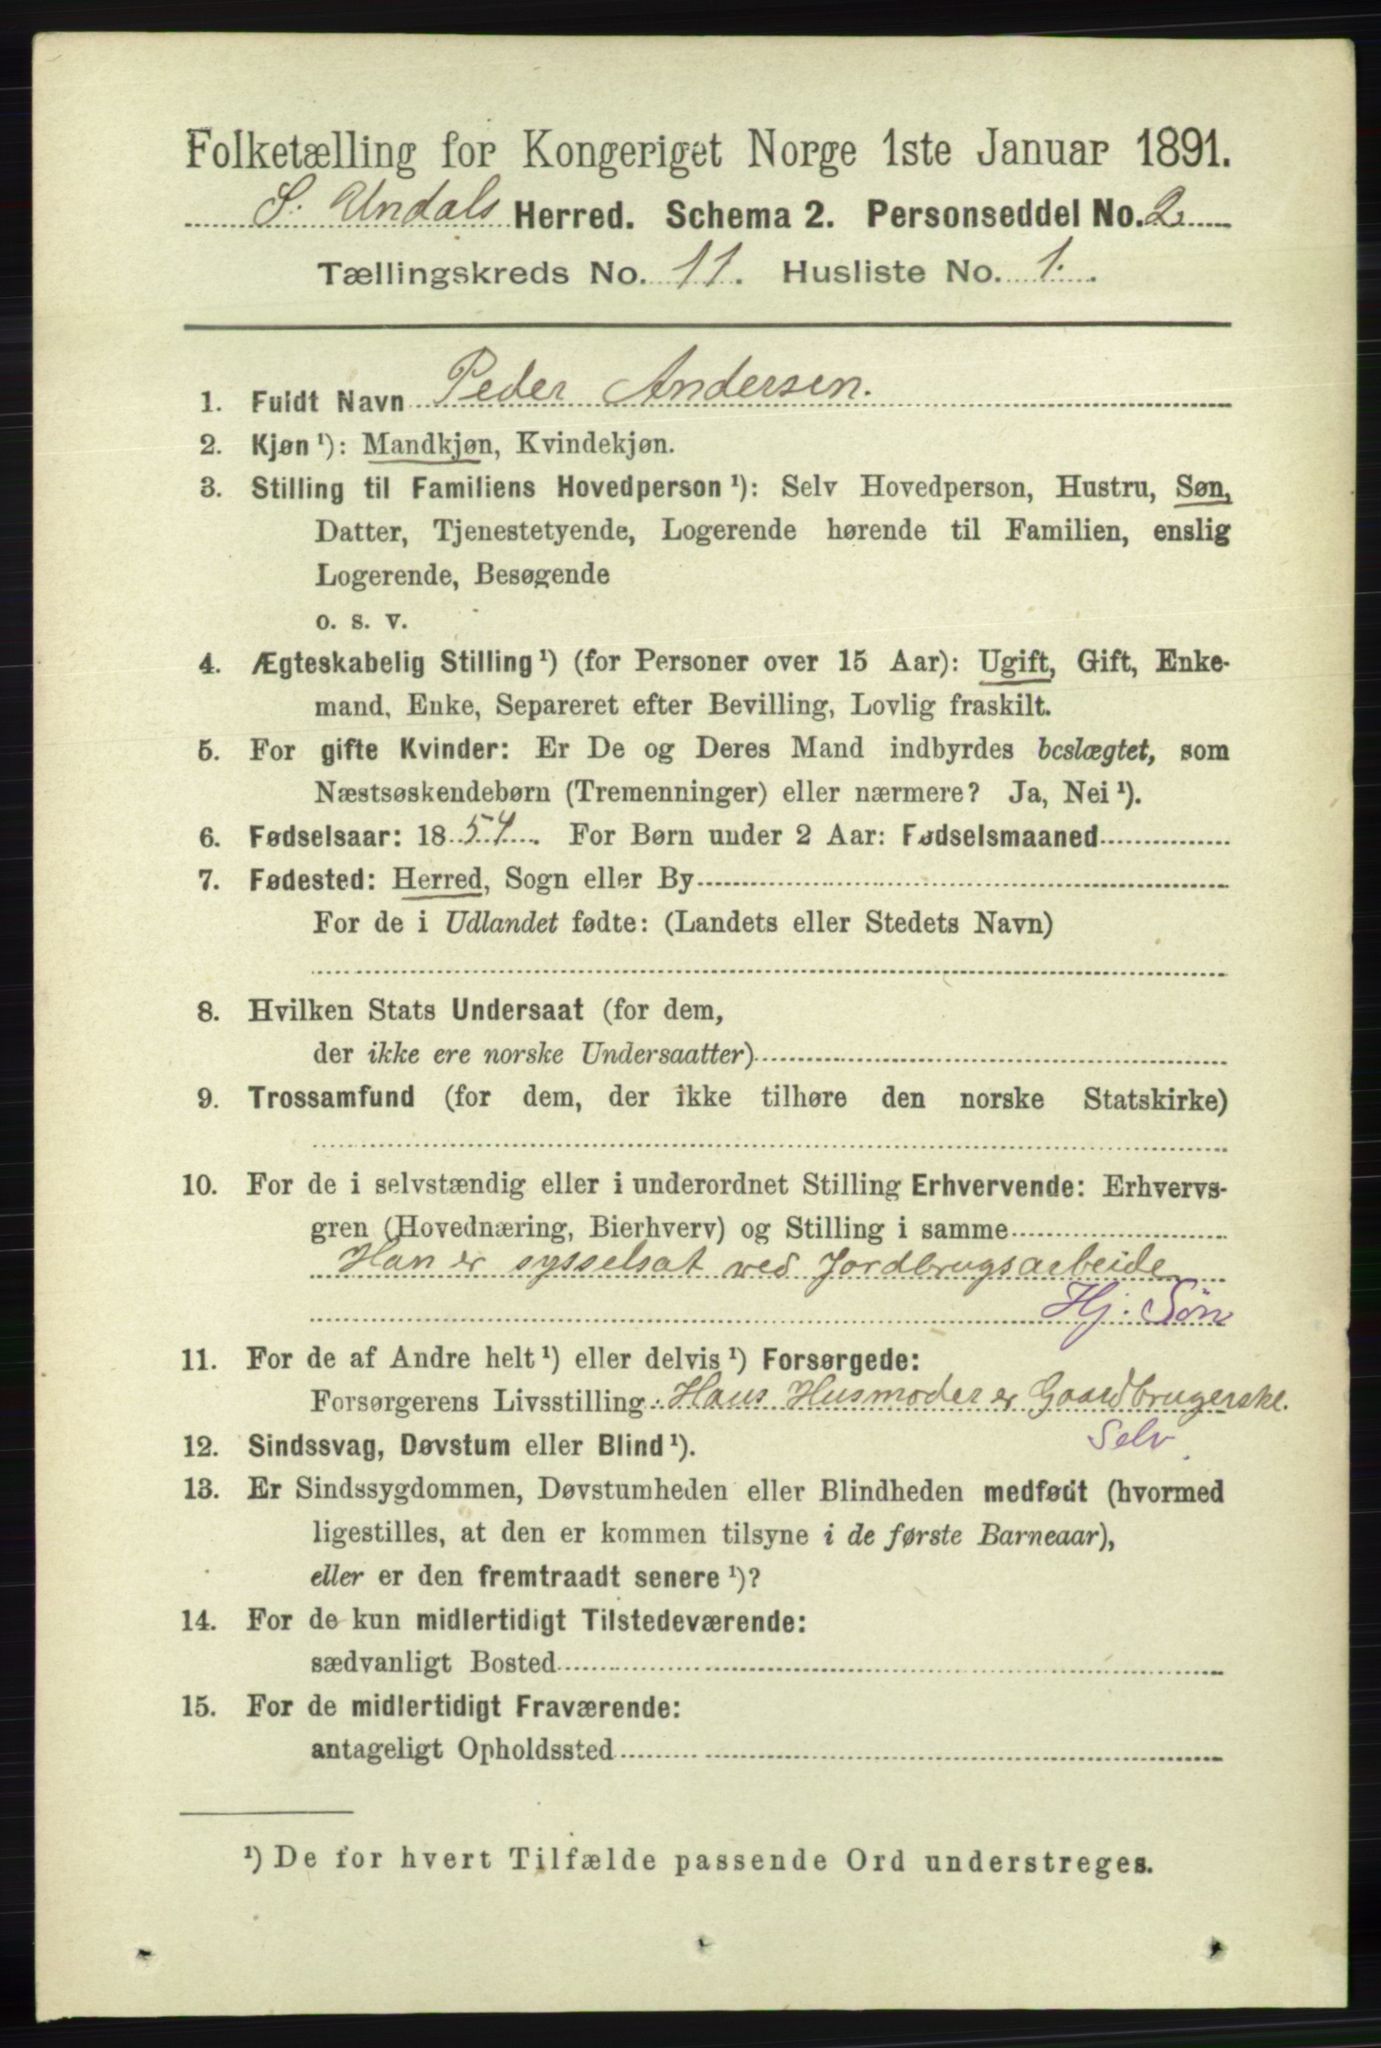 Folketælling for Kongeriget Norge 1ste Januar 1891.
S. Undals Herred. Schema 2. Personseddel No. 2.
Tællingskreds No. 11. Husliste No. 1.
1. Fuldt Navn Peder Andersen.
2. Kjøn ¹): Mandkjøn, Kvindekjøn.
3. Stilling til Familiens Hovedperson ¹): Selv Hovedperson, Hustru, Søn,
Datter, Tjenestetyende, Logerende hørende til Familien, enslig
Logerende, Besøgende
o. s. v.
4. Ægteskabelig Stilling ¹) (for Personer over 15 Aar): Ugift, Gift, Enke-
mand, Enke, Separeret efter Bevilling, Lovlig fraskilt.
5. For gifte Kvinder: Er De og Deres Mand indbyrdes beslægtet, som
Næstsøskendebørn (Tremenninger) eller nærmere? Ja, Nei ¹).
6. Fødselsaar: 1854. For Børn under 2 Aar: Fødselsmaaned
7. Fødested: Herred, Sogn eller By
For de i Udlandet fødte: (Landets eller Stedets Navn)
8. Hvilken Stats Undersaat (for dem,
der ikke ere norske Undersaatter)
9. Trossamfund (for dem, der ikke tilhøre den norske Statskirke)
10. For de i selvstændig eller i underordnet Stilling Erhvervende: Erhvervs-
gren (Hovednæring, Bierhverv) og Stilling i samme
Han er sysselsat ved Jordbrugsarbeide
Hj. Søn
11. For de af Andre helt ¹) eller delvis ¹) Forsørgede:
Forsørgerens Livsstilling: Hans Husmoder er Gaardbrugerske.
Selv
12. Sindssvag, Døvstum eller Blind ¹).
13. Er Sindssygdommen, Døvstumheden eller Blindheden medfødt (hvormed
ligestilles, at den er kommen tilsyne i de første Barneaar),
eller er den fremtraadt senere ¹)?
14. For de kun midlertidigt Tilstedeværende:
sædvanligt Bosted
15. For de midlertidigt Fraværende:
antageligt Opholdssted
¹) De for hvert Tilfælde passende Ord understreges.